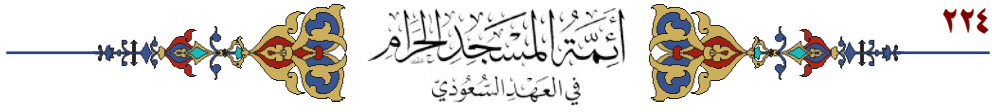 ٢٢٤
أَئِمَّةُ المَسْجِدِ الحَرَامِ
فِي العَهْدِ السُّعُودِيّ